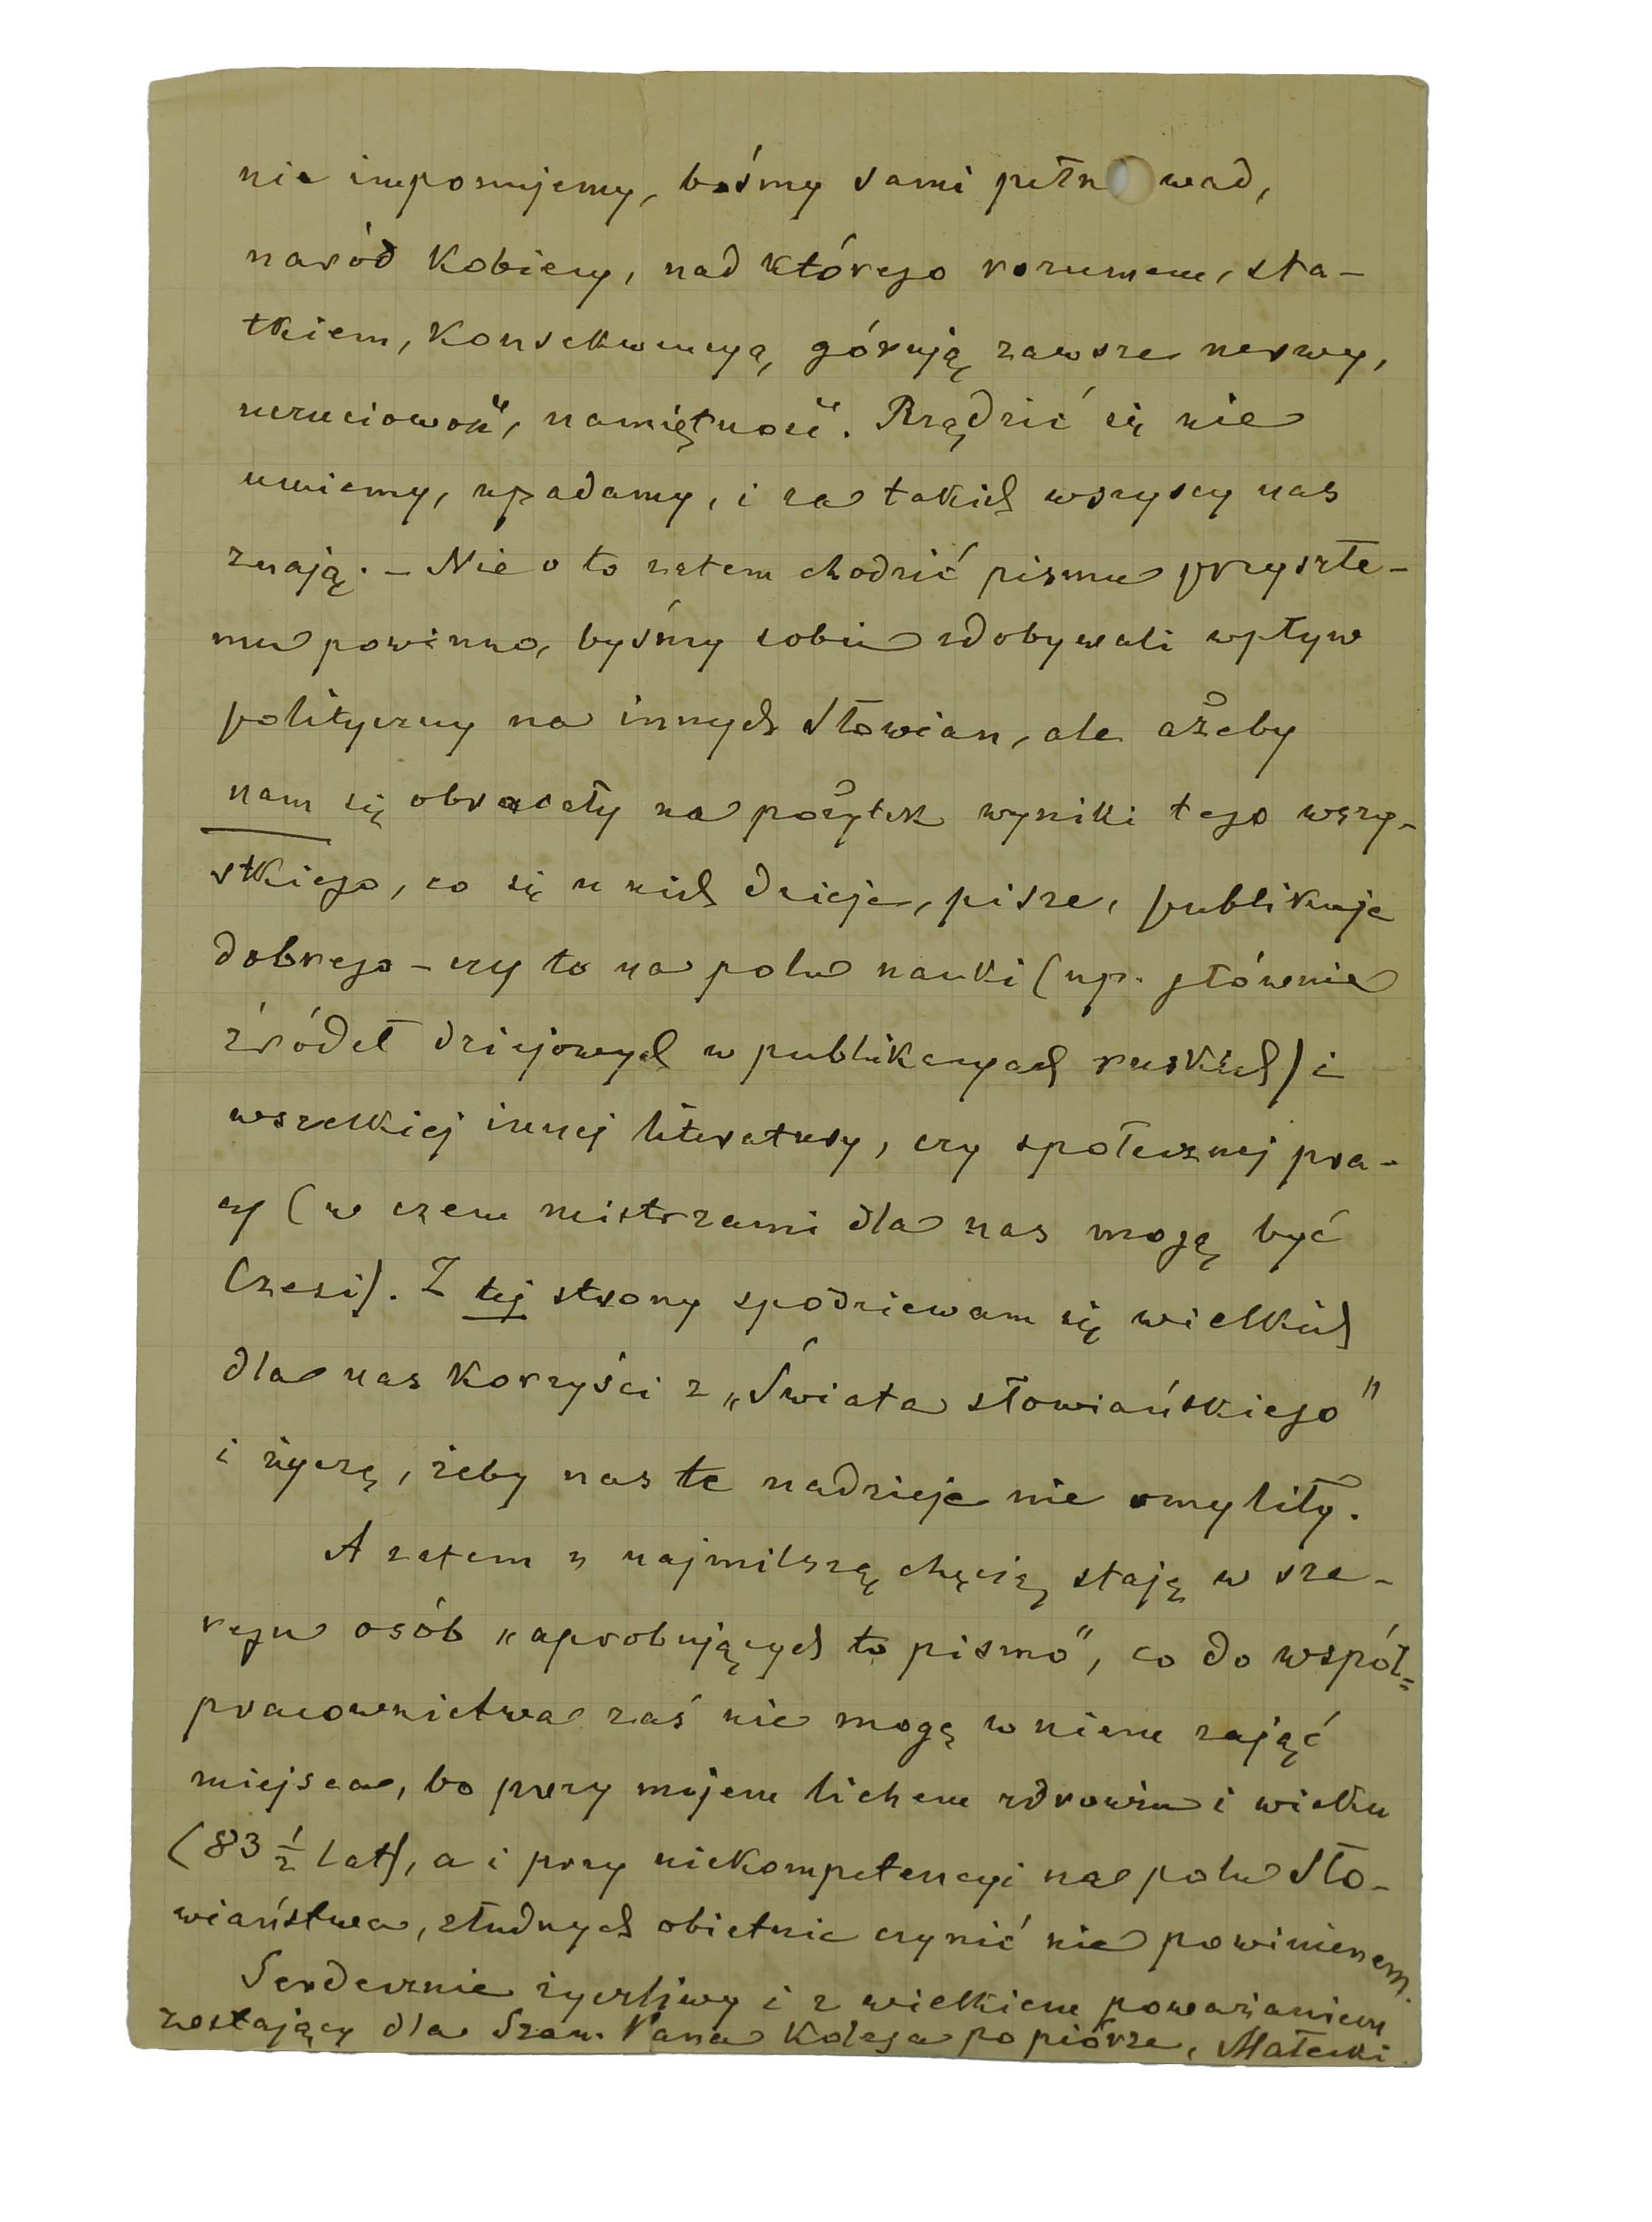 nie imponujemy, bośmy sami pełni wad,
naród kobiecy, nad którego rozumem, sta-
tkiem, konsekwencyą, górują zawsze nerwy,
uczuciowość, namiętność. Rządzić się nie
umiemy, upadamy, i za takich wszyscy nas
znają. – Nie o to zatem chodzić pismu przyszłe-
mu powinno, byśmy sobie zdobywali wpływ
polityczny na innych Słowian, ale ażeby
nam się obracały na pożytek wyniki tego wszy-
stkiego, co się u nich dzieje, pisze, publikuje
dobrego – czy to na polu nauki (np. głównie
źródeł dziejowych w publikacyach ruskich) i
wszelkiej innej literatury, czy społecznej pra-
cy (w czem mistrzami dla nas mogą być
Czesi). Z tej strony spodziewam się wielkich
dla nas korzyści z „Świata słowiańskiego"
i życzę, żeby nas te nadzieje nie omyliły.
A zatem z najmilszą chęcią staję w sze-
regu osób „aprobujących to pismo", co do współ=
pracownictwa zaś nie mogę w niem zająć
miejsca, bo przy mojem lichem zdrowiu i wieku
(83 1/2 lat), a i przy niekompetencyi na polu Sło-
wiaństwa, złudnych obietnic czynić nie powinienem.
Serdecznie życzliwy i z wielkiem poważaniem
zostający dla Szan. Pana Kolega po piórze, Małecki